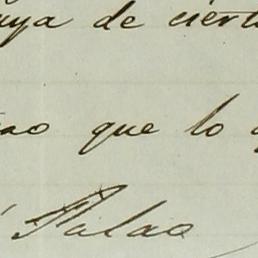 uya de ciert
ao que lo
Palao